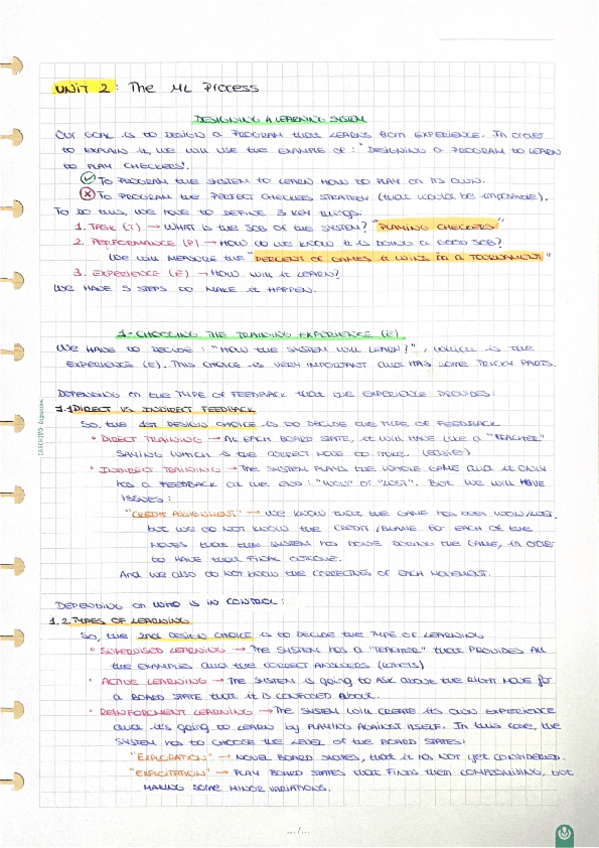 UNIT 2: The ML Process
DESIGNING A LEARNING SYSTEM
OUR GOAL IS TO DESIGN A PROGRAM THAT LEARNS FROM EXPERIENCE. IN ORDER
TO EXPLAIN IT, WE WILL USE THE EXAMPLE OF: "DESIGNING A PROGRAM TO LEARN
TO PLAY CHECKERS".
TO PROGRAM THE SYSTEM TO LEARN HOW TO PLAY ON ITS OWN.
TO PROGRAM THE PERFECT CHECKERS STRATEGY (THAT WOULD BE IMPOSSIBLE).
TO DO THIS, WE HAVE TO DEFINE 3 KEY THINGS:
1. TASK (T) → WHAT IS THE JOB OF THE SYSTEM? "PLAYING CHECKERS"
2. PERFORMANCE (P) → HOW DO WE KNOW IT IS DOING A GOOD JOB?
WE WILL MEASURE THE "PERCENT OF GAMES IT WINS IN A TOURNAMENT"
3. EXPERIENCE (E) → HOW WILL IT LEARN?
WE HAVE 5 STEPS TO MAKE IT HAPPEN.
1- CHOOSING THE TRAINING EXPERIENCE (E)
WE HAVE TO DECIDE: "HOW THE SYSTEM WILL LEARN?", WHICH IS THE
EXPERIENCE (E). THIS CHOICE IS VERY IMPORTANT AND HAS SOME TRICKY PARTS.
DEPENDING ON THE TYPE OF FEEDBACK THAT THE EXPERIENCE PROVIDES:
1.1 DIRECT VS INDIRECT FEEDBACK
SO, THE 1ST DESIGN CHOICE IS TO DECIDE THE TYPE OF FEEDBACK
• DIRECT TRAINING → AT EACH BOARD STATE, IT WILL HAVE LIKE A "TEACHER"
SAYING WHICH IS THE CORRECT MOVE TO MAKE.
• INDIRECT TRAINING → THE SYSTEM PLAYS THE WHOLE GAME AND IT ONLY
HAS A FEEDBACK AT THE END: "WON" OR "LOST". BUT WE WILL HAVE
ISSUES:
"CREDIT ASSIGNMENT" → WE KNOW THAT THE GAME HAS BEEN WON/LOST,
BUT WE DO NOT KNOW THE CREDIT/BLAME FOR EACH OF THE
MOVES THAT THE SYSTEM HAS DONE DURING THE GAME, IN ORDER
TO HAVE THAT FINAL OUTCOME.
AND WE ALSO DO NOT KNOW THE CORRECTNES OF EACH MOVEMENT.
DEPENDING ON WHO IS IN CONTROL:
1.2 TYPES OF LEARNING
SO, THE 2ND DESIGN CHOICE IS TO DECIDE THE TYPE OF LEARNING
• SUPERVISED LEARNING → THE SYSTEM HAS A "TEACHER" THAT PROVIDES ALL
THE EXAMPLES AND THE CORRECT ANSWERS (LABELS)
• ACTIVE LEARNING → THE SYSTEM IS GOING TO ASK ABOUT THE RIGHT MOVE FOR
A BOARD STATE THAT IT IS CONFUSED ABOUT.
• REINFORCEMENT LEARNING → THE SYSTEM WILL CREATE ITS OWN EXPERIENCE
AND IT'S GOING TO LEARN BY PLAYING AGAINST ITSELF. IN THIS CASE, THE
SYSTEM HAS TO CHOOSE THE LEVEL OF THE BOARD STATES:
"EXPLORATION" → NOVEL BOARD STATES, THAT IT HAS NOT YET CONSIDERED.
"EXPLOITATION" → PLAY BOARD STATES THAT FINDS THEM COMPROMISING, BUT
MAKING SOME MINOR VARIATIONS.
.../...